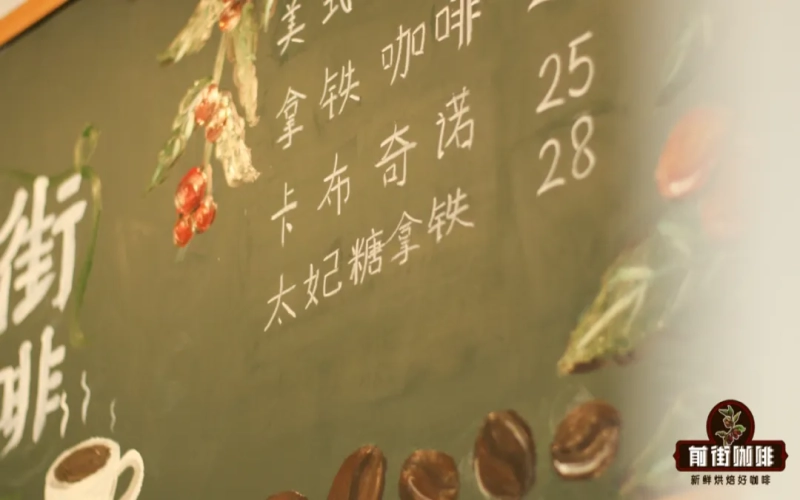 美式
拿铁咖啡
卡布奇诺 25
太妃糖拿铁 28
街
啡
前街咖啡
新鲜烘焙好咖啡